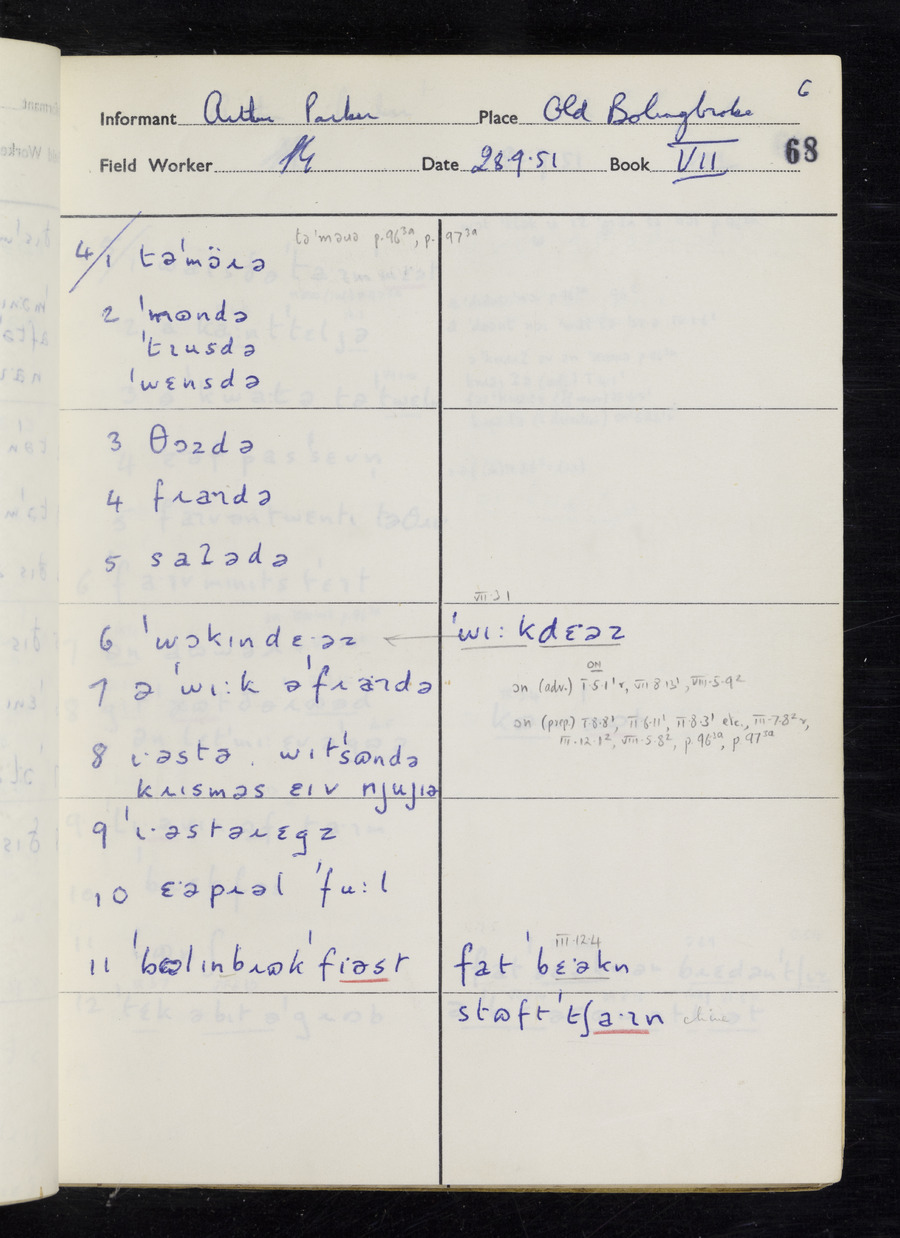 6
Informant Arthur Parker Place Old Bolingbroke
Field Worker Date 28.9.51 Book VII 68
tə'mɒɹə p.96³ᵃ, p. 97³ᵃ
4/1 tə'mɒ̈ɹə
2 'mɒndə
'tɹusdə
'wɛnsdə
3 θɔzdə
4 fɹaɪdə
5 satədə
VII·3·1
6 'wəkɪndɛ·əz 'wɪ:kdɛəz
7 ə'wɪ:k ə'fɹaɪdə
ON
ɔn (adv.) I·5·1'r, VII·8·13', VIII·5·9²
ɔn (prep) I·8·8', II·6·11', II·8·3' etc., III·7·8²r,
III·12·1², VIII·5·8², p 96³ᵃ, p 97³ᵃ
8 ɪ·əstə . wɪt'sɒndə
kɹɪsməs ɛɪv njujɪə
9 'ɪ·əstəɹɛgz
10 ɛ·əpɹəl 'fu:l
III·12·4
11 'bɒlɪnbɹɒk'fɪəst fat 'bɛ·əkn
stɒft 'tʃa·ɪn chine